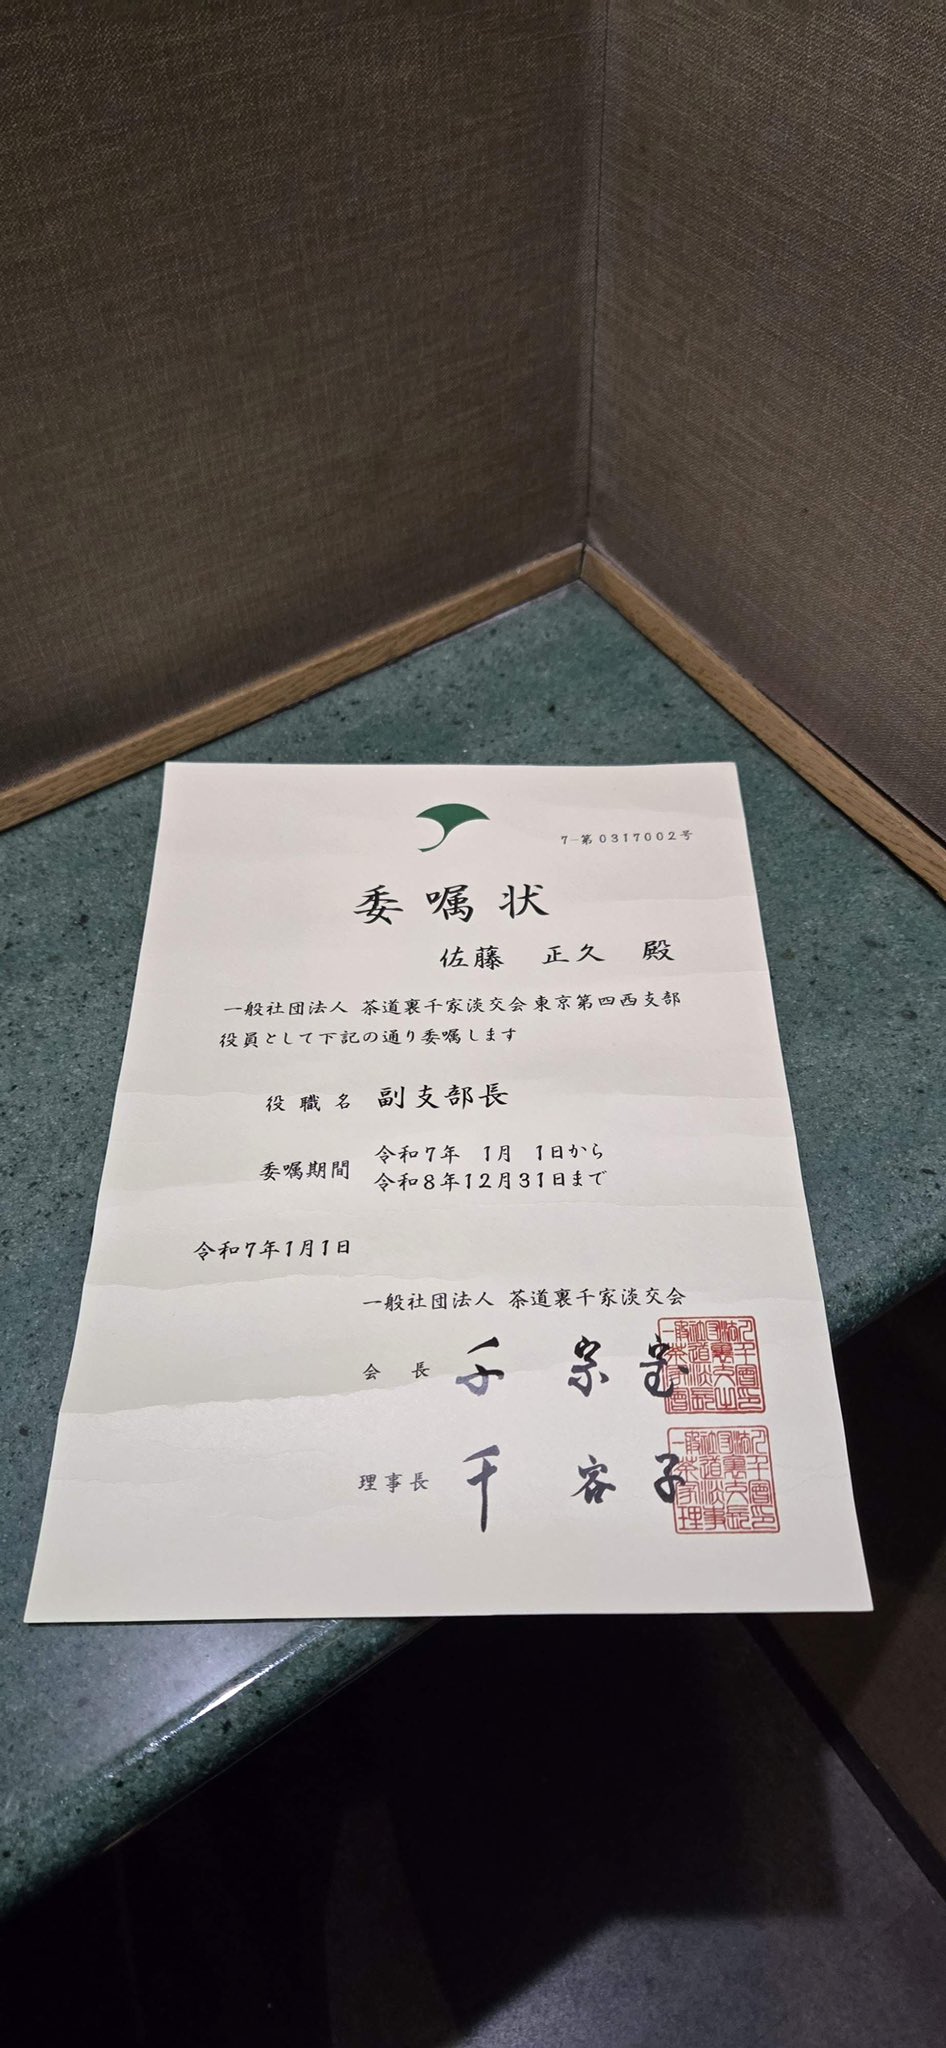 7-第0317002号
委嘱状
佐藤 正久 殿
一般社団法人 茶道裏千家淡交会東京第四西支部
役員として下記の通り委嘱します
役職名 副支部長
委嘱期間 令和7年 1月 1日から
令和8年12月31日まで
令和7年1月1日
一般社団法人 茶道裏千家淡交会
会長 千 宗室
理事長 千 容子